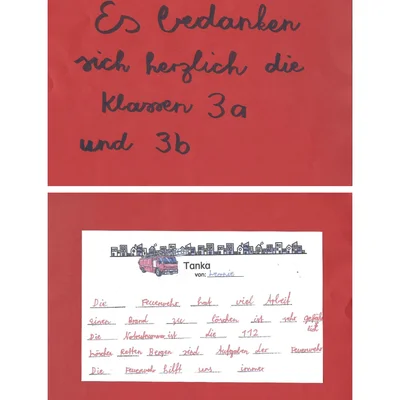 Es bedanken
sich herzlich die
Klassen 3a
und 3b
Tanka
von: Leonie
Die Feuerwehr hat viel Arbeit
einen Brand zu löschen ist sehr gefähr
lich
Die Notrufnummer ist die 112
Retten Bergen sind Aufgaben der Feuerwehr
Die Feuerwehr hilft uns immer